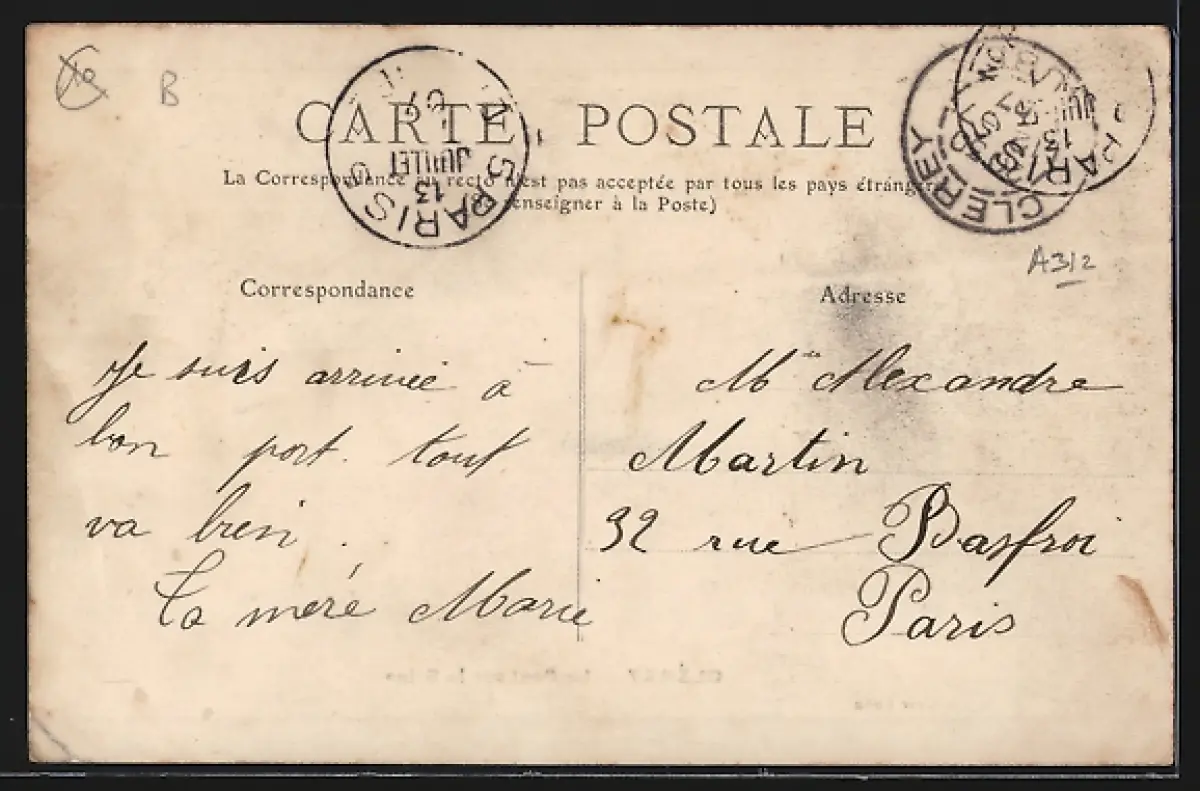 B
CARTE POSTALE
La Correspondance au recto n'est pas acceptée par tous les pays étrangers
enseigner à la Poste)
PARIS
13
JUILLET
07
CLEREY
PARIS
13
A312
Correspondance
Adresse
Je suis arrivée à
bon port. tout
va bien.
Ta mère Marie
Mme Alexandre
Martin
32 rue Basfroi
Paris